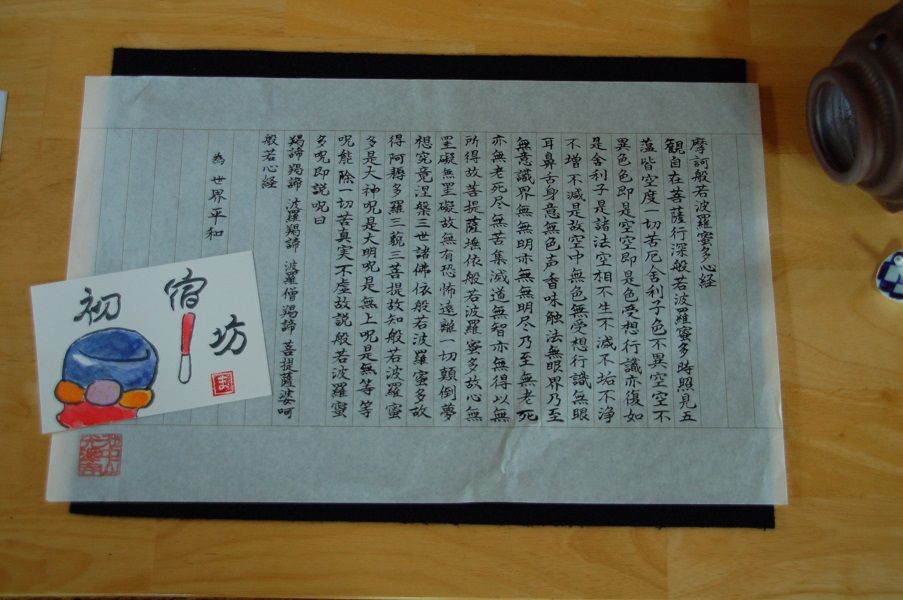 摩訶般若波羅蜜多心経
観自在菩薩行深般若波羅蜜多時照見五
蘊皆空度一切苦厄舍利子色不異空空不
異色色即是空空即是色受想行識亦復如
是舍利子是諸法空相不生不滅不垢不浄
不増不減是故空中無色無受想行識無眼
耳鼻舌身意無色声香味触法無眼界乃至
無意識界無無明亦無無明尽乃至無老死
亦無老死尽無苦集滅道無智亦無得以無
所得故菩提薩埵依般若波羅蜜多故心無
罣礙無罣礙故無有恐怖遠離一切顛倒夢
想究竟涅槃三世諸佛依般若波羅蜜多故
得阿耨多羅三藐三菩提故知般若波羅蜜
多是大神呪是大明呪是無上呪是無等等
呪能除一切苦真実不虚故説般若波羅蜜
多呪即説呪曰
羯諦羯諦 波羅羯諦 波羅僧羯諦 菩提薩婆呵
般若心経
為 世界平和
初
宿坊
ま